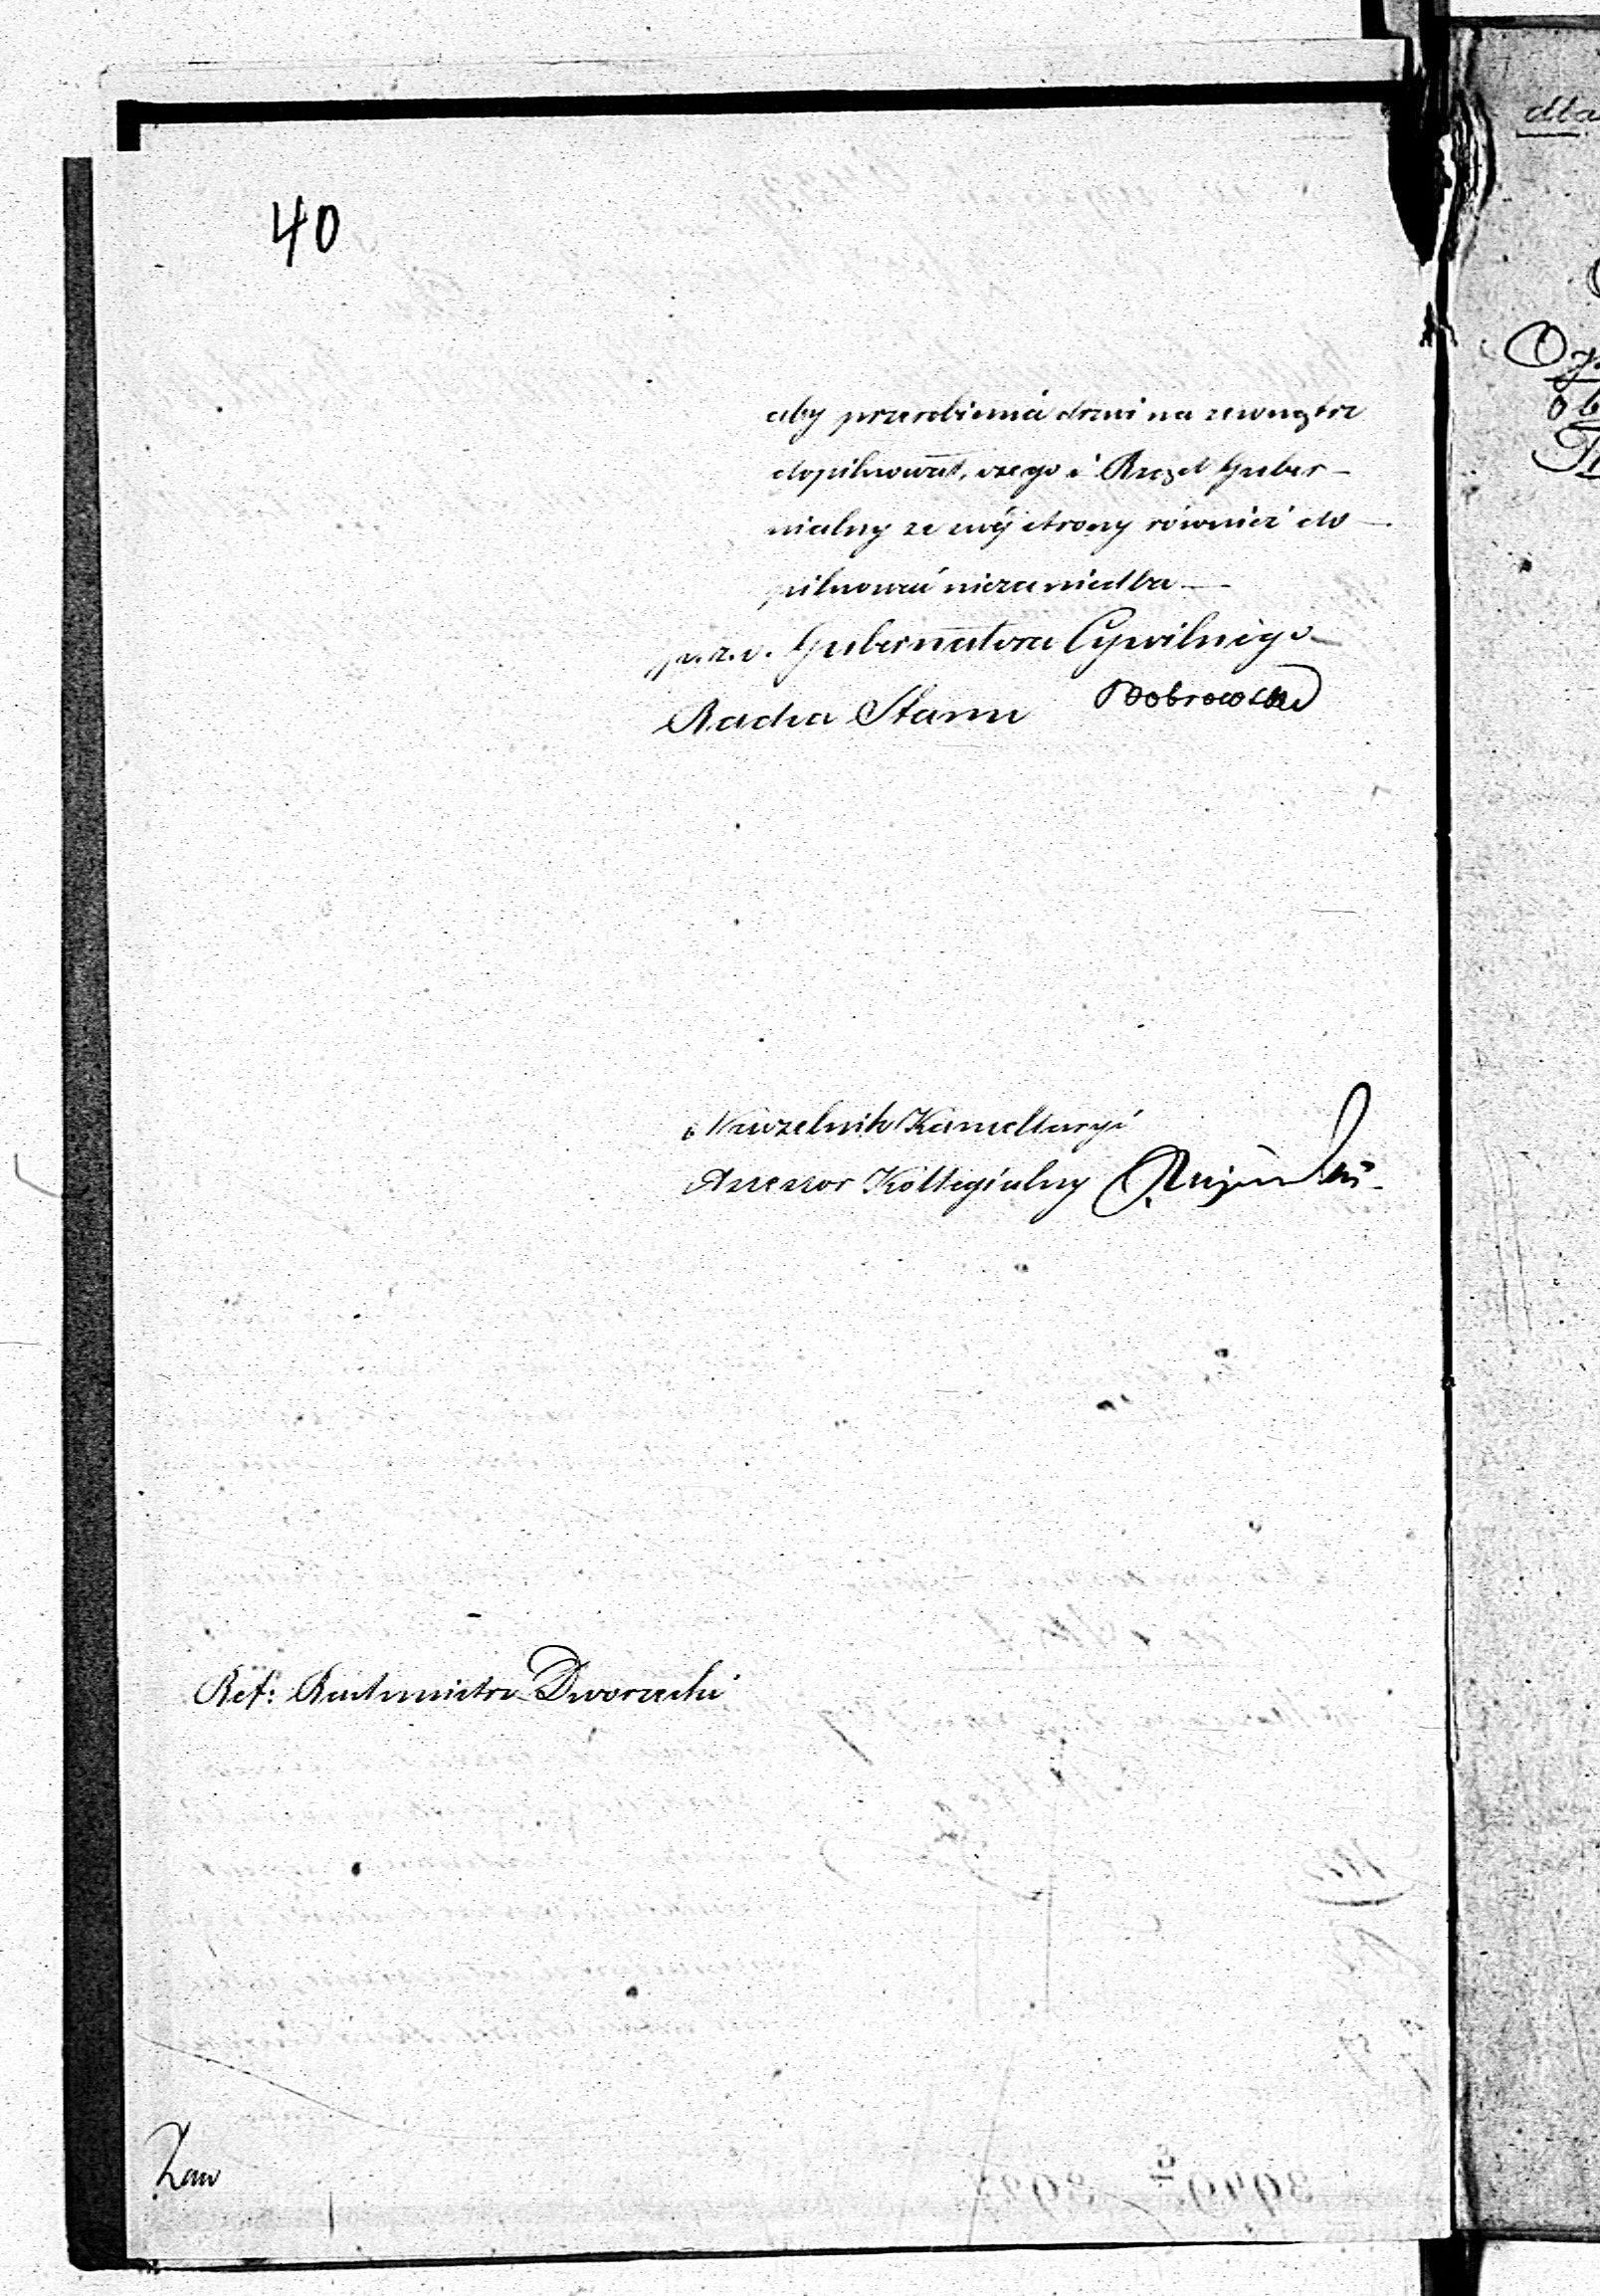 40
aby przerobienia drzwi na zewnątrz
dopilnował, czego i Rząd Guber-
nialny ze swéj strony również do-
pilnować niezaniedba
p.z.o. Gubernatora Cywilnego
Radca Stanu Dobrowolski
Naczelnik Kancellaryi
Assessor Kollegialny
Ref: Buchmistrz Dworzecki
Zaw
dla